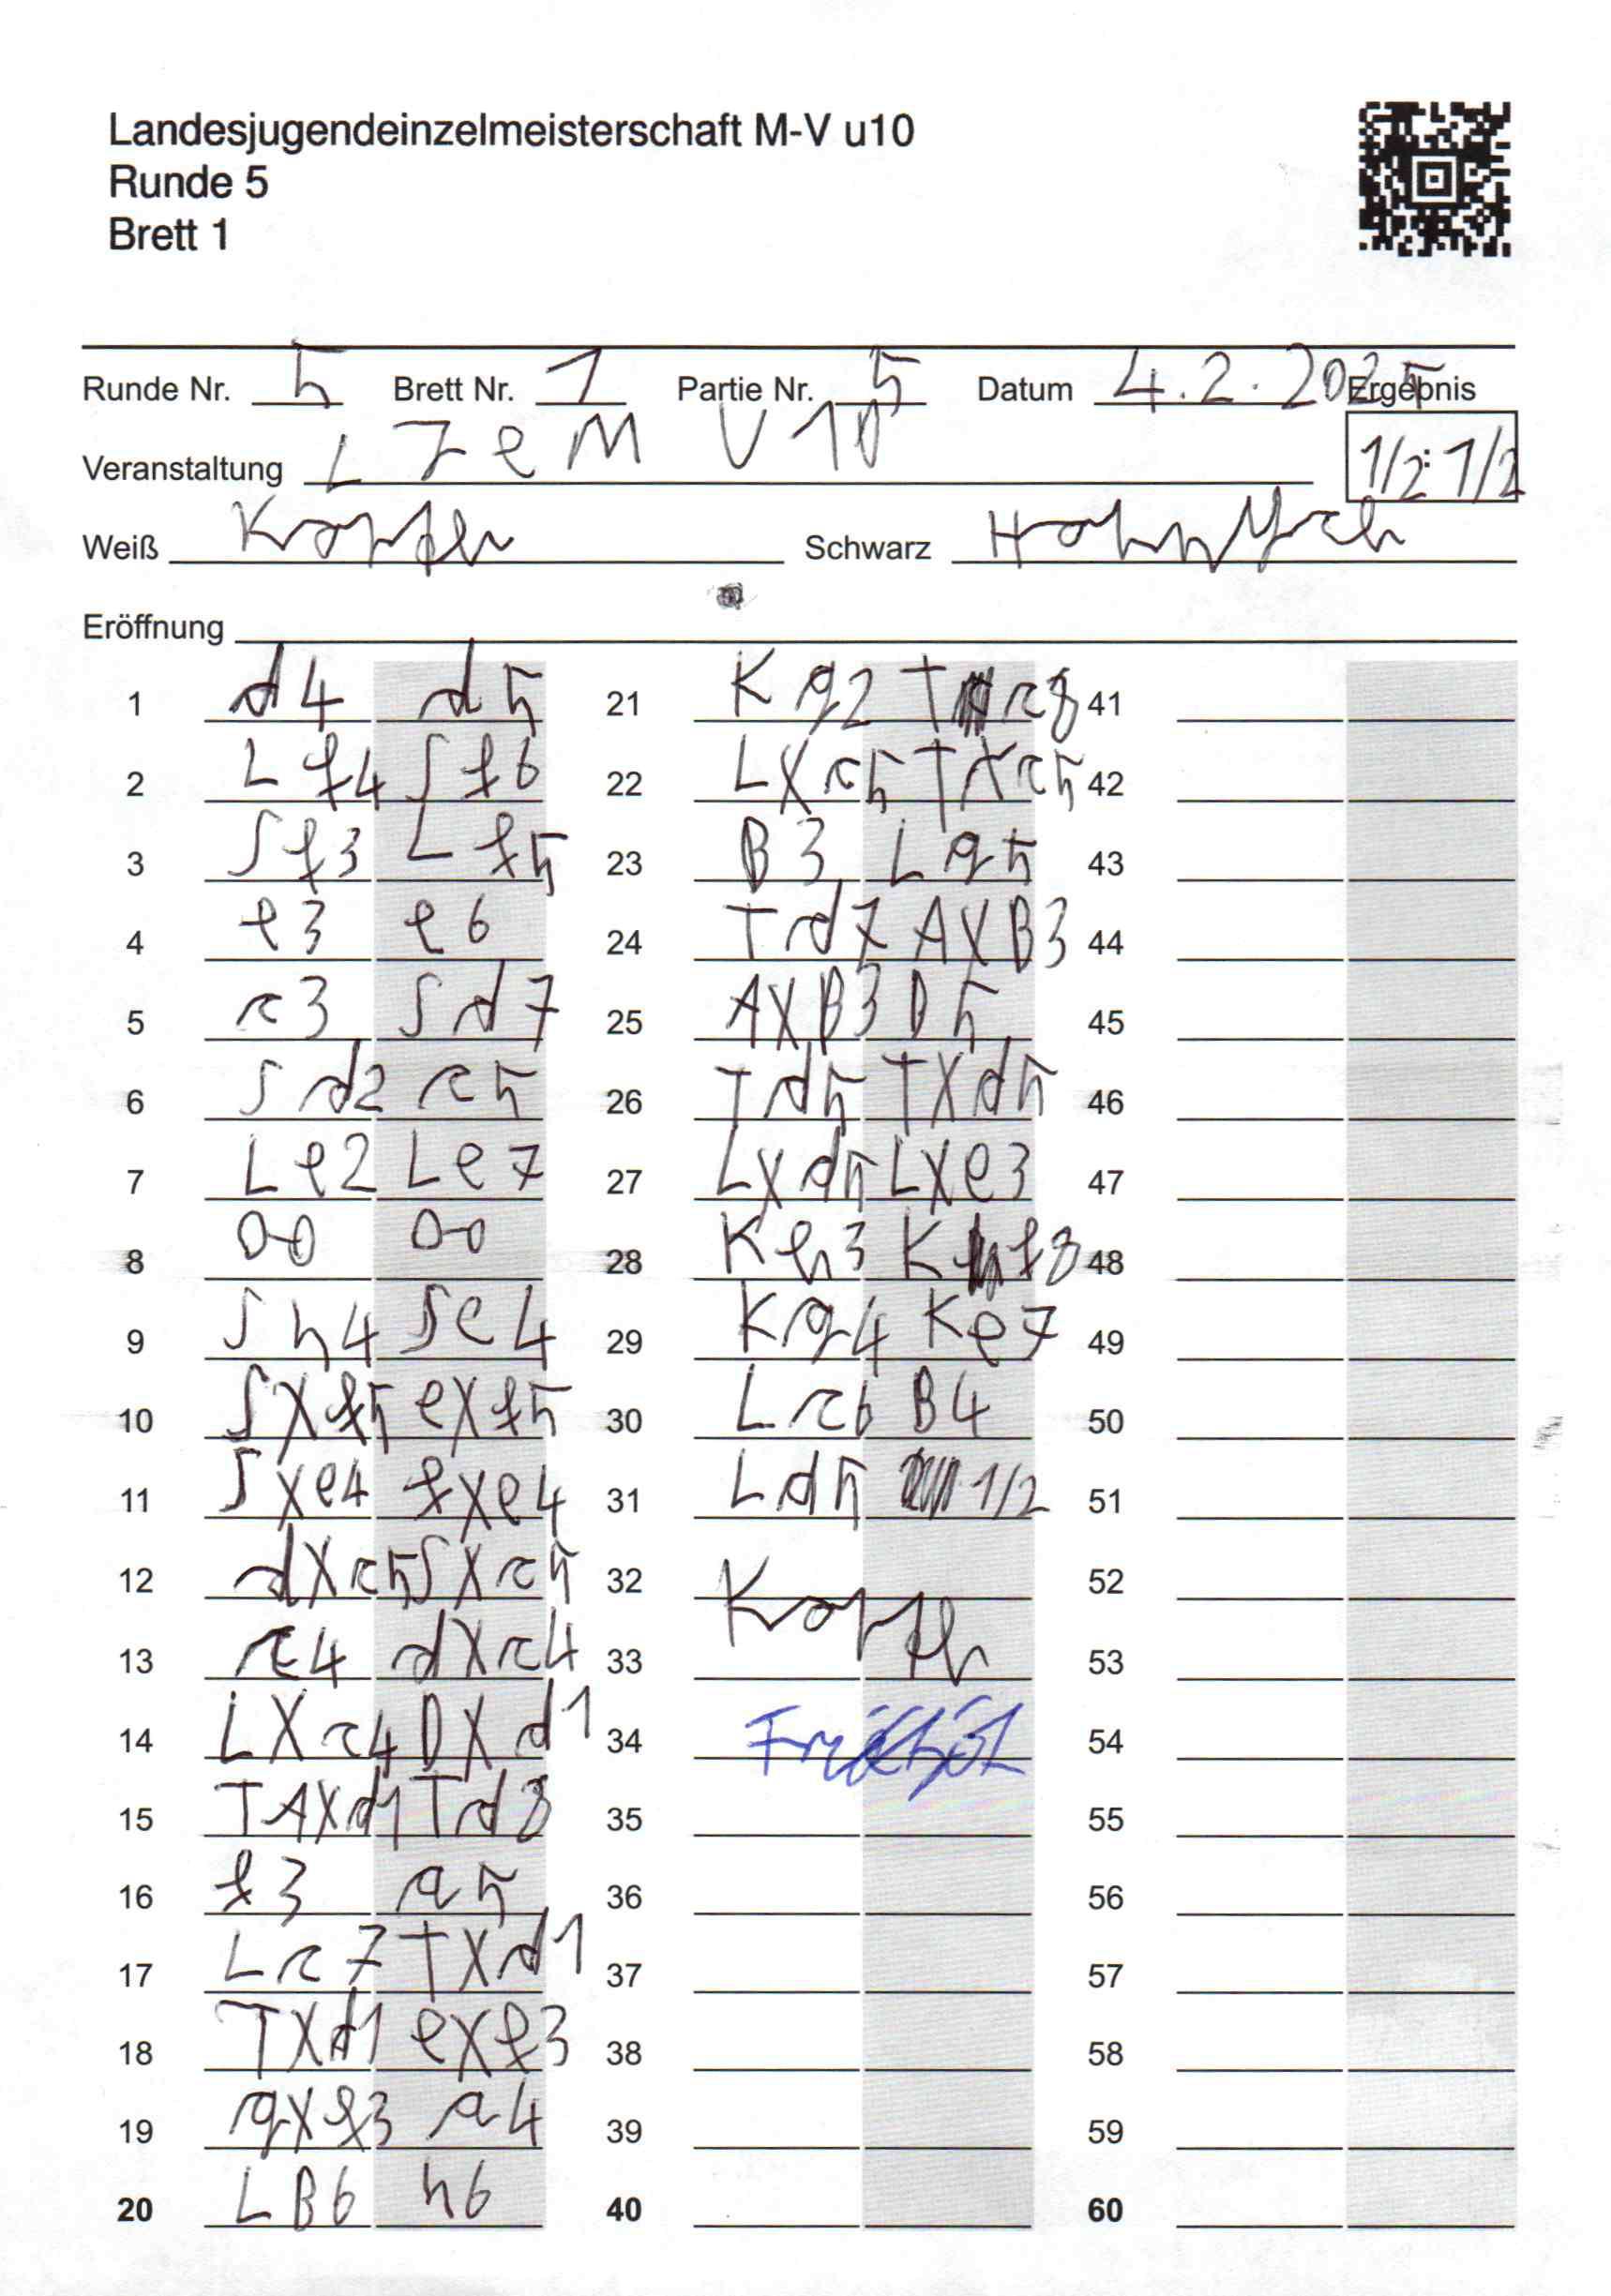 Landesjugendeinzelmeisterschaft M-V u10
Runde 5
Brett 1
Runde Nr. 5 Brett Nr. 1 Partie Nr. 5 Datum 4.2.2025 Ergebnis
Veranstaltung LJeM U10 1/2:1/2
Weiß Schwarz
Eröffnung
1 d4 d5 21 Kg2 Tc8 41
2 Lf4 Sf6 22 LXc5 TXc5 42
3 Sf3 Lf5 23 B3 Lg5 43
4 e3 e6 24 Td7 AXB3 44
5 c3 Sd7 25 AXB3 D5 45
6 Sd2 c5 26 Td5 TXd5 46
7 Le2 Le7 27 LXd5 LXe3 47
8 0-0 0-0 28 Kh3 Kf8 48
9 Sh4 Se4 29 Kg4 Ke7 49
10 SXf5 eXf5 30 Lc6 B4 50
11 SXe4 fXe4 31 Ld5 1/2 51
12 dXc5 SXc5 32 52
13 c4 dXc4 33 53
14 LXc4 DXd1 34 54
15 TAXd1 Td8 35 55
16 f3 a5 36 56
17 Lc7 TXd1 37 57
18 TXd1 eXf3 38 58
19 gXf3 a4 39 59
20 LB6 h6 40 60